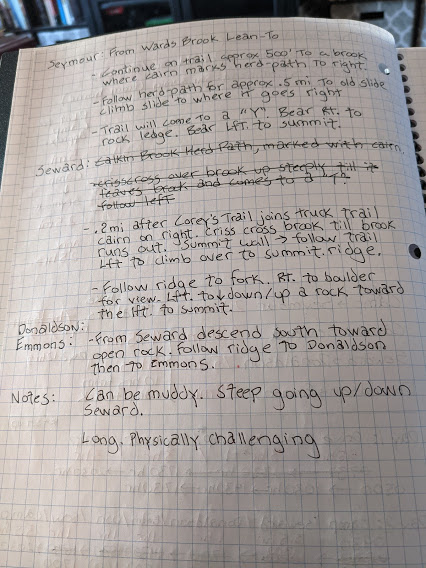 Seymour: From Wards Brook Lean-To
- Continue on trail approx 500' to a brook
where cairn marks herd-path to right.
- Follow herd path for approx .5 mi. to old slide
climb slide to where it goes right
- Trail will come to a "Y". Bear Rt. to
rock ledge. Bear Lft. to summit.
Seward: Calkin Brook Herd Path, marked with cairn.
- crisscross over brook up steeply till it
leaves brook and comes to a "Y"
follow left
- .2mi after Corey's Trail joins truck trail
cairn on right. Criss cross brook till brook
runs out. Summit wall → follow trail
Lft to climb over to summit ridge.
- Follow ridge to fork. Rt. to boulder
for view. Lft. to ↓down/up a rock toward
the lft. to summit.
Donaldson:
Emmons: - From Seward descend south toward
open rock. Follow ridge to Donaldson
then to Emmons.
Notes: Can be muddy. Steep going up/down
Seward.
Long. Physically challenging